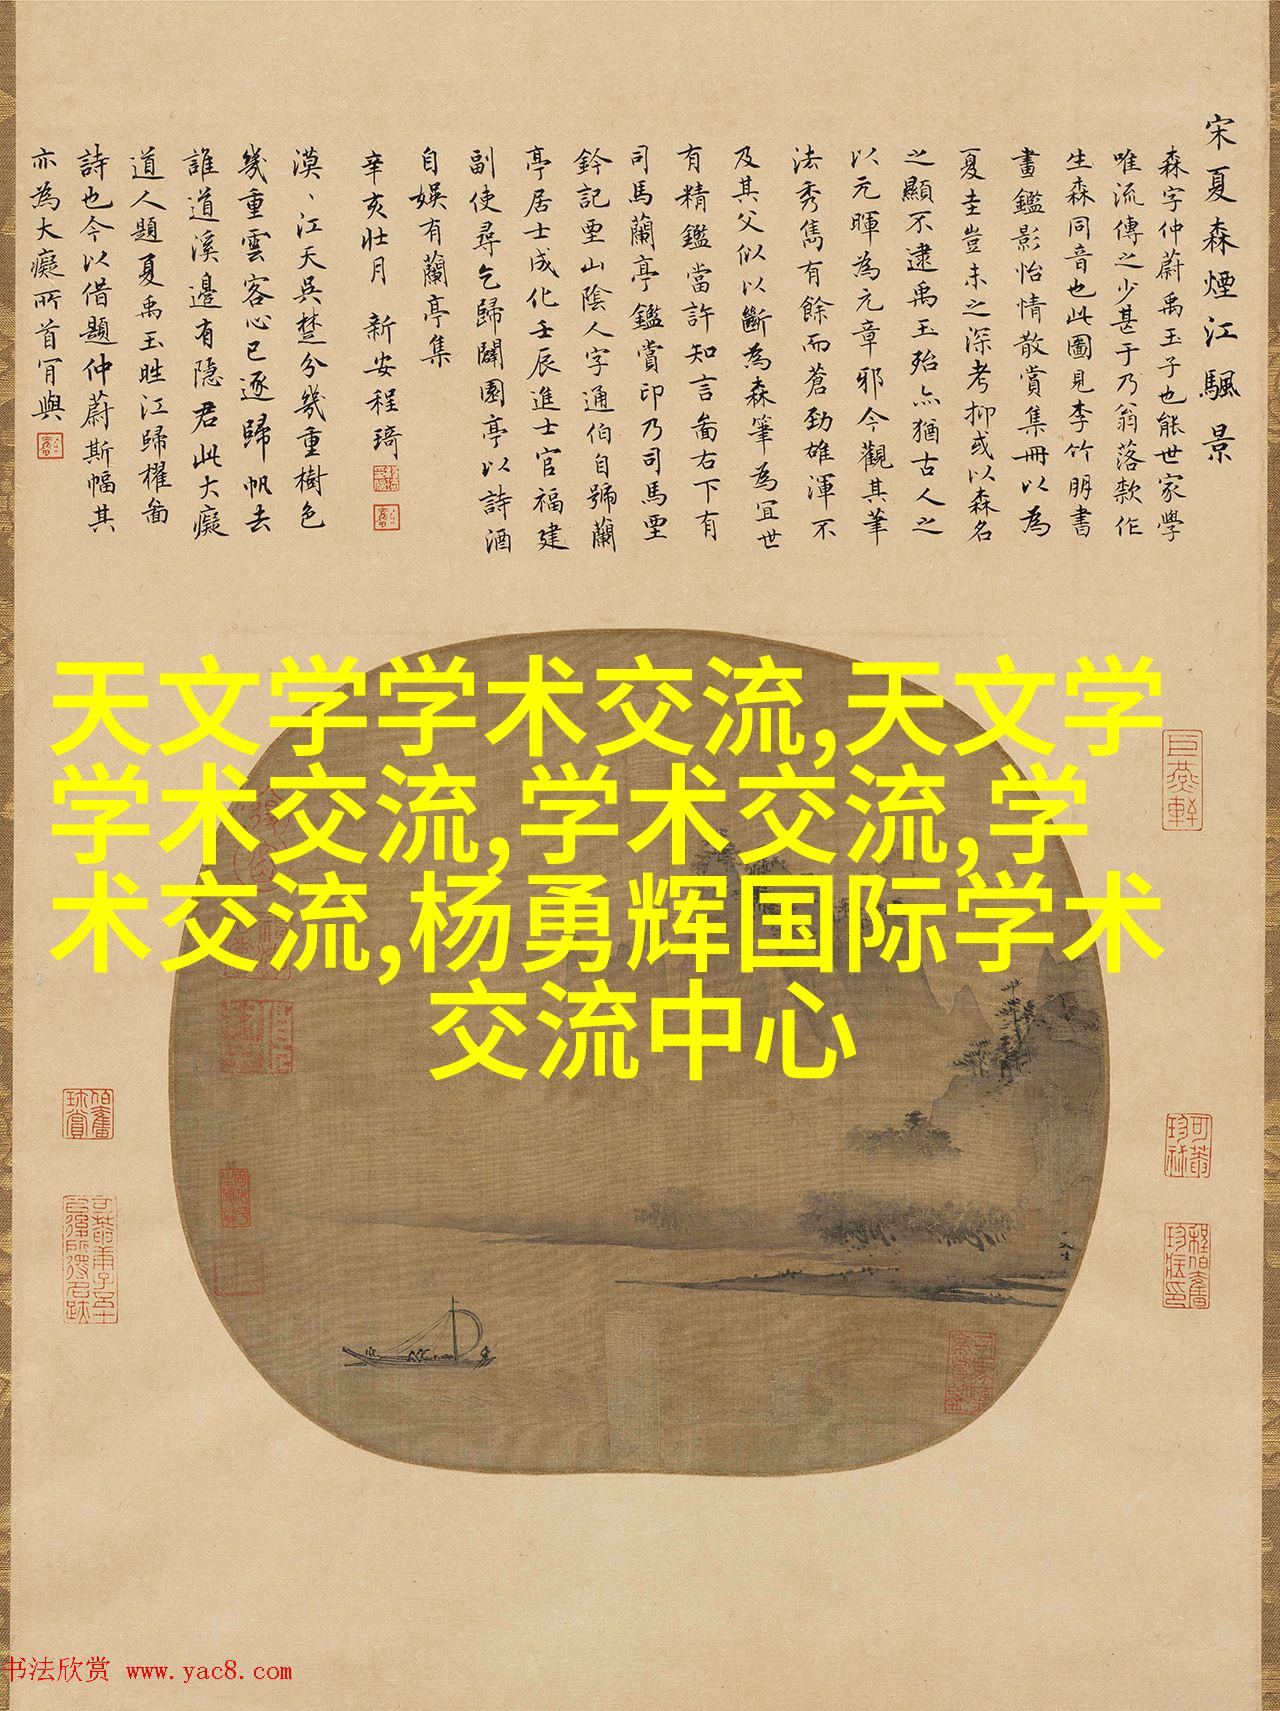 宋夏森煙江颿景
森字仲蔚禹玉子也能世家學
唯流傳之少甚于乃翁落欵作
生森同音也此圖見李竹朋書
畫鑑影怡情散賞集冊以為
夏圭豈未之深考抑或以森名
之顯不逮禹玉殆亦猶古人之
以元暉為元章邪今觀其筆
法秀雋有餘而蒼勁雄渾不
及其父似以斷為森筆為宜世
有精鑑當許知言畵右下有
司馬蘭亭鑑賞印乃司馬垔
鈐記垔山陰人字通伯自號蘭
亭居士成化壬辰進士官福建
副使尋乞歸闢園亭以詩酒
自娛有蘭亭集
辛亥壯月 新安程琦
漠、江天吳楚分幾重樹色
幾重雲客心已逐歸帆去
誰道溪邊有隱君此大癡
道人題夏禹玉晴江歸櫂畵
詩也今以借題仲蔚斯幅其
亦為大癡所首肎與
天文学学术交流,天文学
学术交流,学术交流,学
术交流,杨勇辉国际学术
交流中心
书法欣赏 www.yac8.com